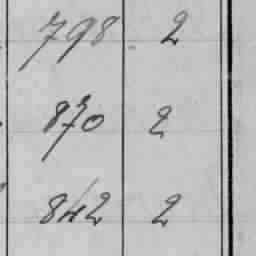 798 2
870 2
842 2